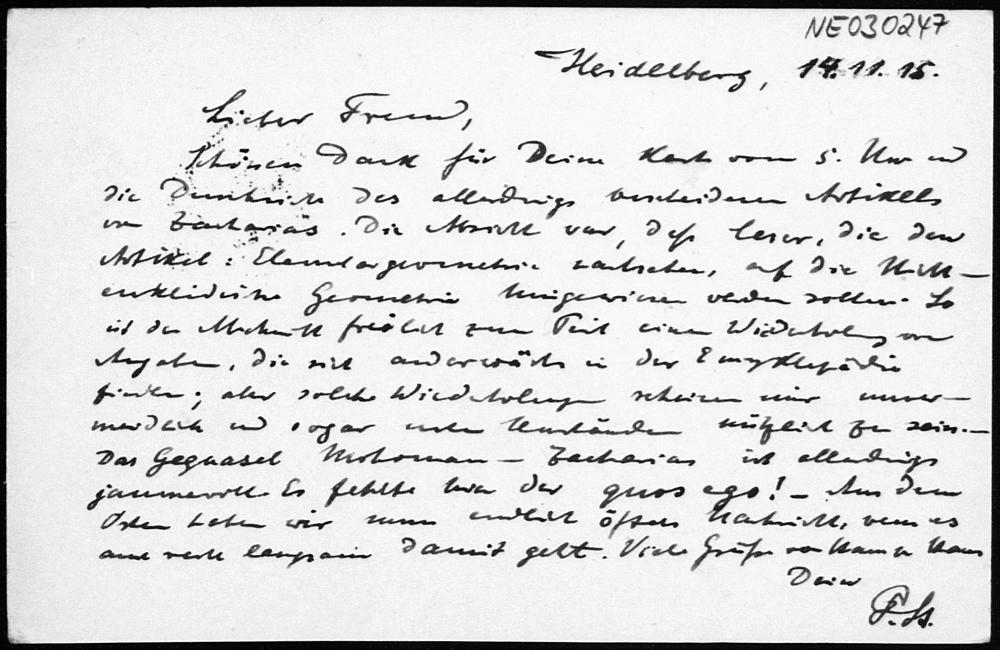 NE030247
Heidelberg, 14.11.15.
Lieber Freund,
Schönen Dank für Deine Karte vom 5. Nov. und
die Durchsicht des allerdings bescheidenen Artikels
von Zacharias. Die Absicht war, daß Leser, die den
Artikel: Elementargeometrie nachsehen, auf die Nicht-
euklidische Geometrie hingewiesen werden sollen. So
ist der Abschnitt freilich zum Teil eine Wiederholung von
Angaben, die sich anderwärts in der Enzyklopädie
finden; aber solche Wiederholungen scheinen mir unver-
meidlich und sogar unter Umständen nützlich zu sein.—
Das Gequassel — Zacharias ist allerdings
jammervoll. Es fehlte hier der quos ego! — Aus dem
Osten haben wir nun endlich öfters Nachricht, wenn es
auch recht langsam damit geht. Viele Grüße von Haus zu Haus
Dein
P. St.